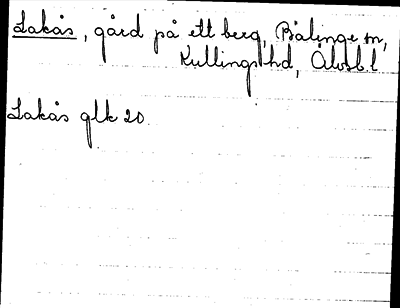 Lakås, gård på ett berg, Bälinge sn,
Kullings hd, Älvsb. l
Lakås glk 20.